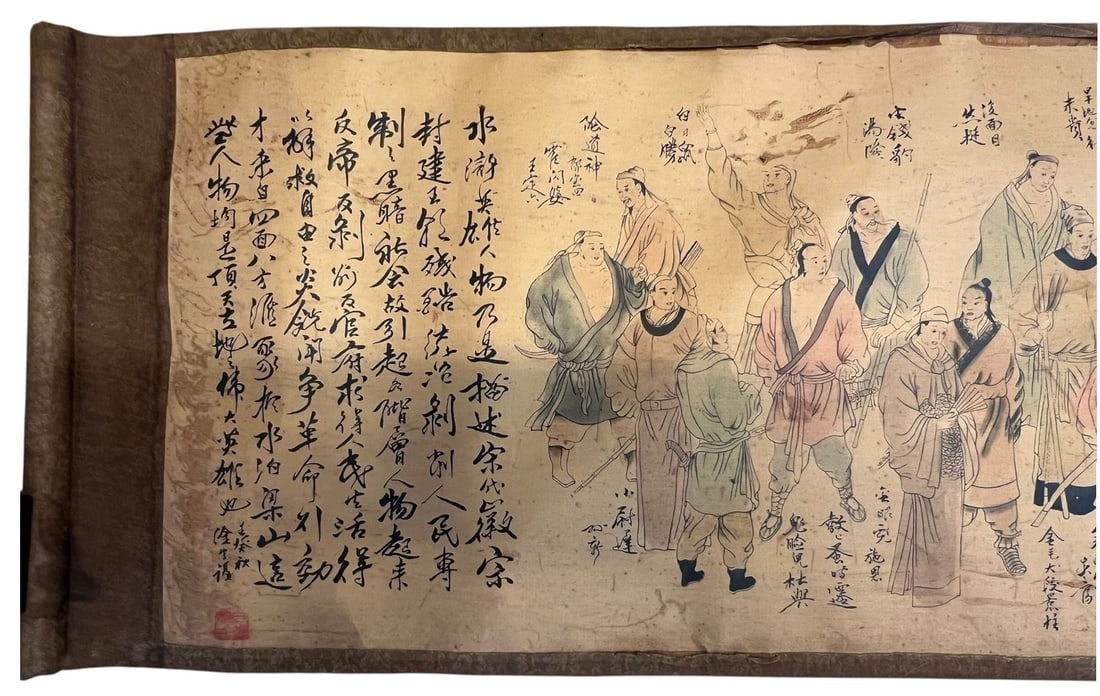 没面目
焦挺
金錢豹
湯隆
白日鼠
白勝
險道神
郁保四
霍闪婆
王定六
金毛犬段景柱
金眼彪
施恩
鼓上蚤時遷
鬼臉兒杜興
小尉遲
孫新
水滸英雄人物乃是描述宋代徽宗
封建王朝殘酷統治剝削人民專
制之黑暗社會故引起各階層人物起來
反帝反剝削反官府求得人民生活得
以解救自由之炎鬥争革命行動
才来自四面八方滙聚於水泊梁山這
些人物均是頂天立地之偉大英雄也
癸秋